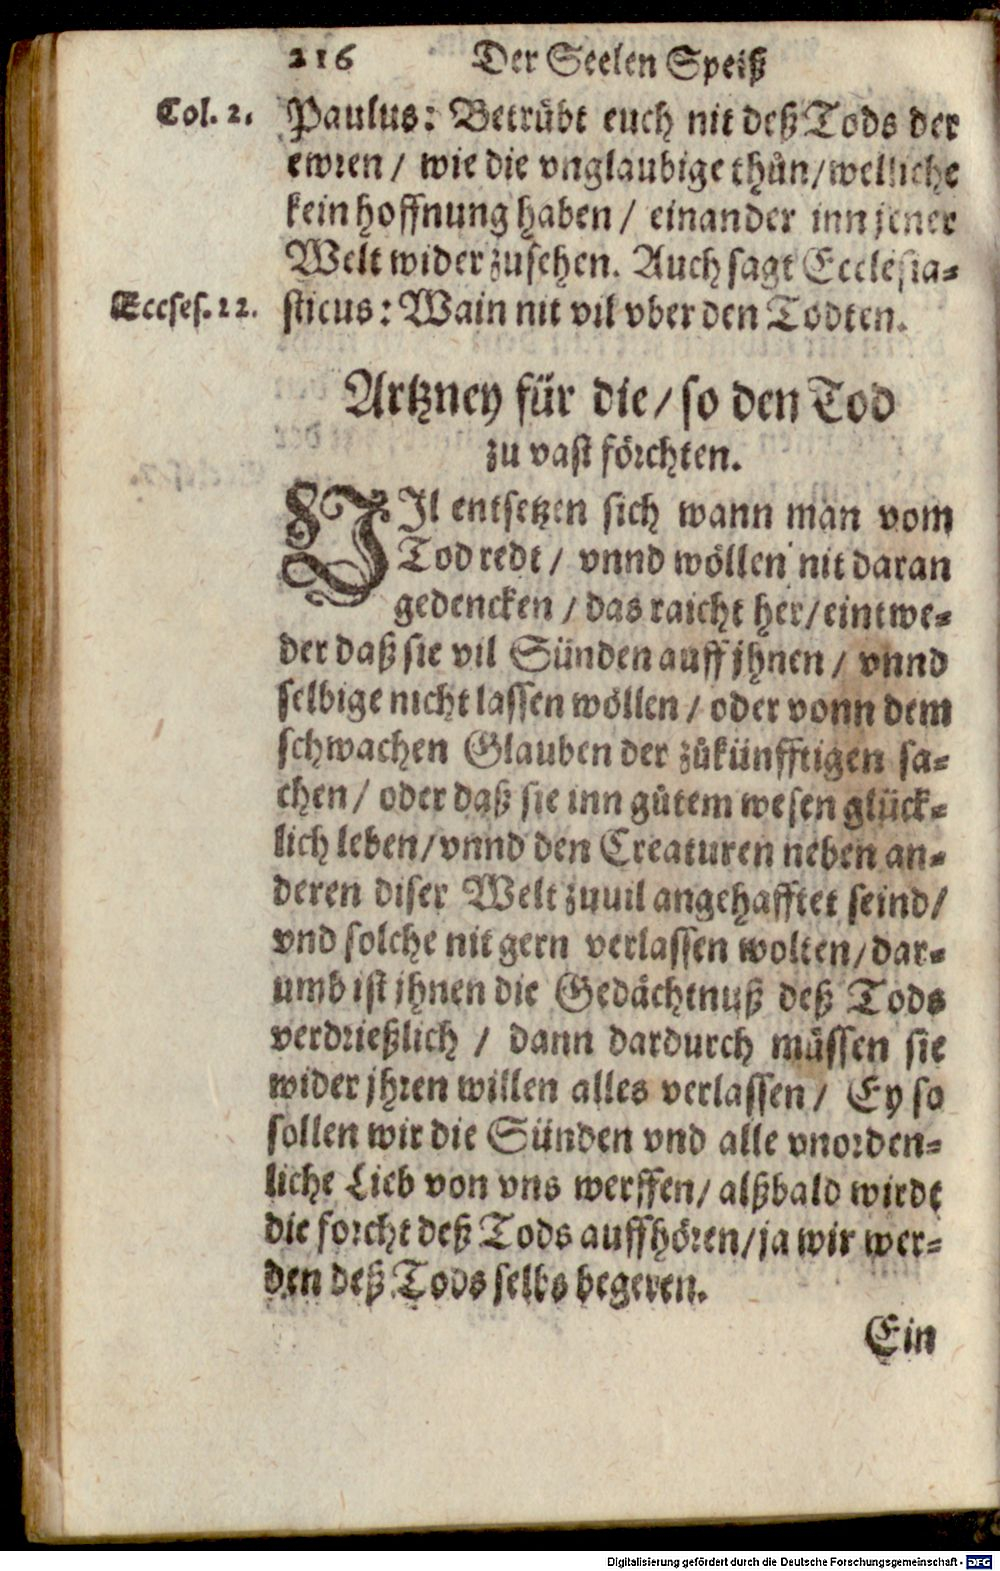 216 Der Seelen Speiß
Col. 2. Paulus: Betrübt euch nit deß Tods der
ewren / wie die vnglaubige thůn / welliche
kein hoffnung haben / einander inn jener
Welt wider zusehen. Auch sagt Ecclesia-
Eccles. 22. sticus: Wain nit vil vber den Todten.
Artzney für die / so den Tod
zu vast förchten.
VIl entsetzen sich wann man vom
Tod redt / vnnd wöllen nit daran
gedencken / das raicht her / eintwe-
der daß sie vil Sünden auff jhnen / vnnd
selbige nicht lassen wöllen / oder vonn dem
schwachen Glauben der zůkünfftigen sa-
chen / oder daß sie inn gůtem wesen glück-
lich leben / vnnd den Creaturen neben an-
deren diser Welt zuuil angehafftet seind /
vnd solche nit gern verlassen wolten / dar-
umb ist jhnen die Gedächtnuß deß Tods
verdrießlich / dann dardurch müssen sie
wider jhren willen alles verlassen / Ey so
sollen wir die Sünden vnd alle vnorden-
liche Lieb von vns werffen / alßbald wirdt
die forcht deß Tods auffhören / ja wir wer-
den deß Tods selbs begeren.
Ein
Digitalisierung gefördert durch die Deutsche Forschungsgemeinschaft - DFG